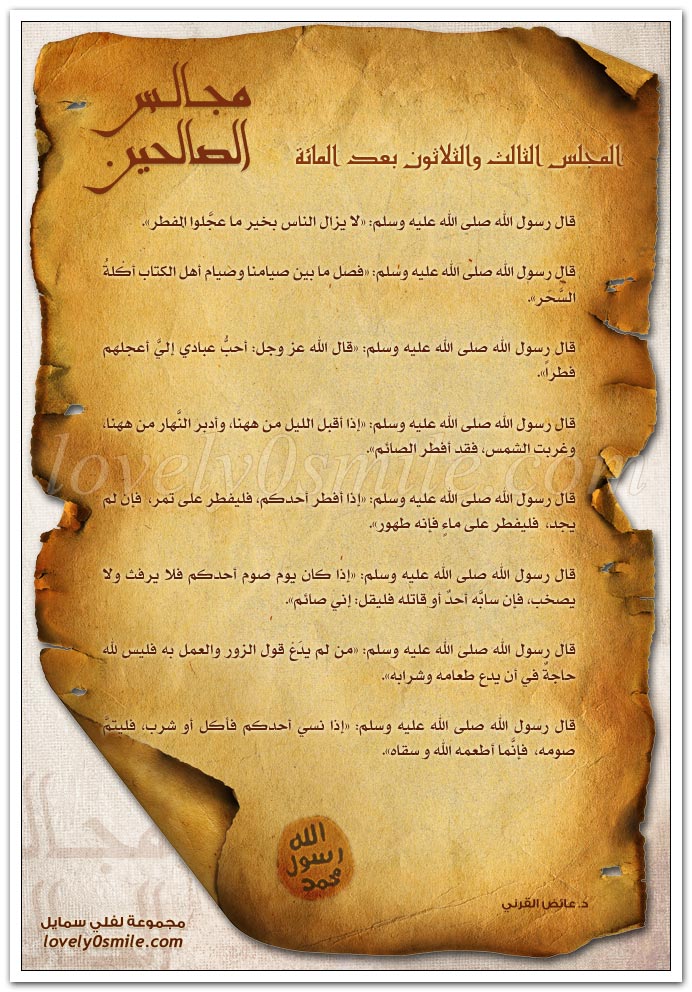 مجالس
الصالحين
المجلس الثالث والثلاثون بعد المائة
قال رسول الله صلى الله عليه وسلم: «لا يزال الناس بخير ما عجَّلوا المفطر».
قال رسول الله صلى الله عليه وسلم: «فصل ما بين صيامنا وصيام أهل الكتاب أكلةُ
السَّحَر».
قال رسول الله صلى الله عليه وسلم: «قال الله عز وجل: أحبُّ عبادي إليَّ أعجلهم
فطراً».
قال رسول الله صلى الله عليه وسلم: «إذا أقبل الليل من ههنا، وأدبر النَّهار من ههنا،
وغربت الشمس، فقد أفطر الصائم».
lovely0smile.com
قال رسول الله صلى الله عليه وسلم: «إذا أفطر أحدكم، فليفطر على تمر، فإن لم
يجد، فليفطر على ماءٍ فإنه طهور».
قال رسول الله صلى الله عليه وسلم: «إذا كان يوم صوم أحدكم فلا يرفث ولا
يصخب، فإن سابَّه أحدٌ أو قاتله فليقل: إني صائم».
قال رسول الله صلى الله عليه وسلم: «من لم يدَعْ قول الزور والعمل به فليس لله
حاجةٌ في أن يدع طعامه وشرابه».
قال رسول الله صلى الله عليه وسلم: «إذا نسي أحدكم فأكل أو شرب، فليتمَّ
صومه، فإنَّما أطعمه الله و سقاه».
الله
رسول
محمد
د.عائض القرني
مجموعة لفلي سمايل
lovely0smile.com